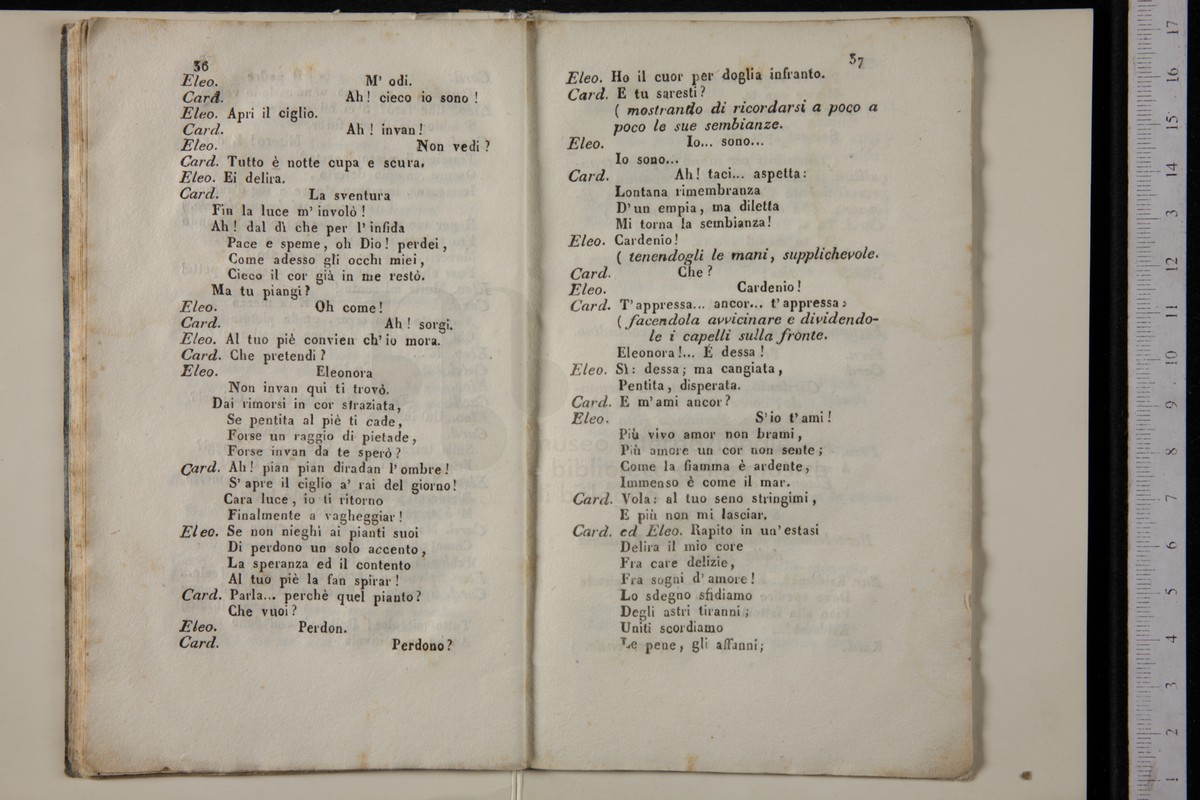 36
Eleo. M' odi.
Card. Ah! cieco io sono!
Eleo. Apri il ciglio.
Card. Ah! invan!
Eleo. Non vedi?
Card. Tutto è notte cupa e scura.
Eleo. Ei delira.
Card. La sventura
Fin la luce m' involò!
Ah! dal dì che per l' infida
Pace e speme, oh Dio! perdei,
Come adesso gli occhi miei,
Cieco il cor già in me restò.
Ma tu piangi?
Eleo. Oh come!
Card. Ah! sorgi.
Eleo. Al tuo piè convien ch' io mora.
Card. Che pretendi?
Eleo. Eleonora
Non invan qui ti trovò.
Dai rimorsi in cor straziata,
Se pentita al piè ti cade,
Forse un raggio di pietade,
Forse invan da te sperò?
Card. Ah! pian pian diradan l' ombre!
S' apre il ciglio a' rai del giorno!
Cara luce, io ti ritorno
Finalmente a vagheggiar!
Eleo. Se non nieghi ai pianti suoi
Di perdono un solo accento,
La speranza ed il contento
Al tuo piè la fan spirar!
Card. Parla... perchè quel pianto?
Che vuoi?
Eleo. Perdon.
Card. Perdono?
37
Eleo. Ho il cuor per doglia infranto.
Card. E tu saresti?
( mostrando di ricordarsi a poco a
poco le sue sembianze.
Eleo. Io... sono...
Io sono...
Card. Ah! taci... aspetta:
Lontana rimembranza
D' un empia, ma diletta
Mi torna la sembianza!
Eleo. Cardenio!
( tenendogli le mani, supplichevole.
Card. Che?
Eleo. Cardenio!
Card. T' appressa... ancor... t' appressa:
( facendola avvicinare e dividendo-
le i capelli sulla fronte.
Eleonora!... É dessa!
Eleo. Sì: dessa; ma cangiata,
Pentita, disperata.
Card. E m' ami ancor?
Eleo. S' io t' ami!
Più vivo amor non brami,
Più amore un cor non sente;
Come la fiamma è ardente,
Immenso è come il mar.
Card. Vola: al tuo seno stringimi,
E più non mi lasciar.
Card. ed Eleo. Rapito in un' estasi
Delira il mio core
Fra care delizie,
Fra sogni d' amore!
Lo sdegno sfidiamo
Degli astri tiranni;
Uniti scordiamo
Le pene, gli affanni;